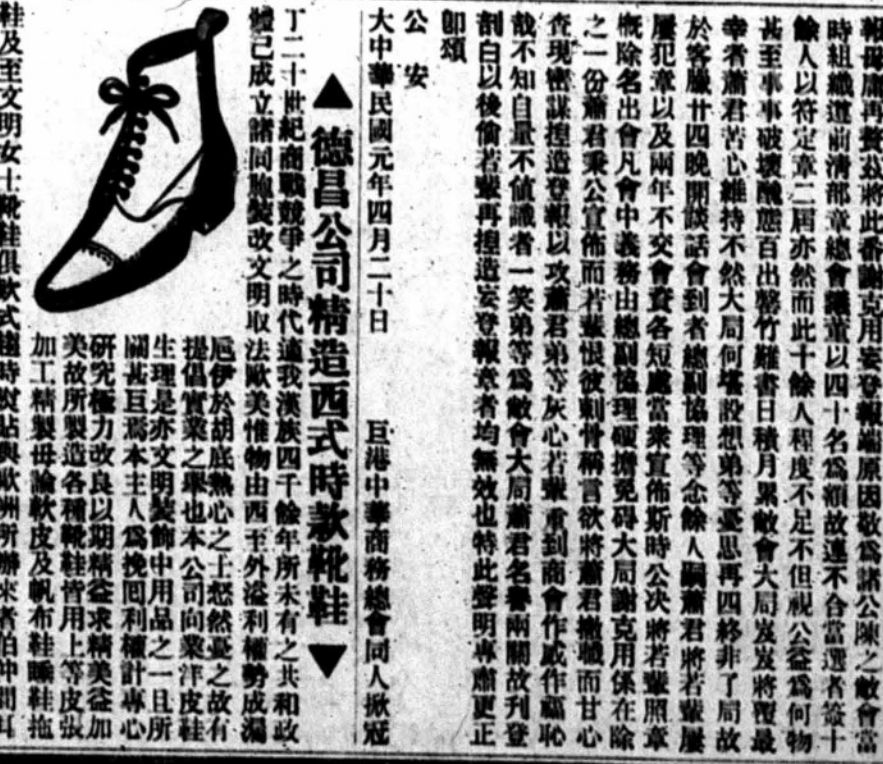 報毋庸再贅茲將此番謝克用妄登報端原因敬爲諸公陳之敝會當
時組織遵前清部章總會議董以四十名爲額故連不合當選者簽十
餘人以符定章二屆亦然而此十餘人程度不足不但視公益爲何物
甚至事事破壞醜態百出罄竹難書日積月累敝會大局岌岌將覆最
幸者蕭君苦心維持不然大局何堪設想弟等憂思再四終非了局故
於客臘廿四晚開談話會到者總副協理等念餘人嗣蕭君將若輩屢
屢犯章以及兩年不交會費各短處當衆宣佈斯時公决將若輩照章
概除名出會凡會中義務由總副協理硬擔免碍大局謝克用係在除
之一份蕭君秉公宣佈而若輩恨彼刺骨稱言欲將蕭君撤職而甘心
查現密謀揑造登報以攻蕭君弟等灰心若輩重到商會作威作福恥
哉不知自量不値識者一笑弟等爲敝會大局蕭君名譽兩關故刊登
剖白以後倘若輩再揑造妄登報章者均無效也特此聲明專肅更正
卽頌
公安
大中華民國元年四月二十日 巨港中華商務總會同人揿冠
▲德昌公司精造西式時款靴鞋▼
丁二十世紀商戰競爭之時代遭我漢族四千餘年所未有之共和政
體已成立諸同胞裝改文明取法歐美惟物由西至外溢利權勢成漏
巵伊於胡底熱心之士愁然憂之故有
提倡實業之舉也本公司向業洋皮鞋
生理是亦文明裝飾中用品之一且所
關甚巨焉本主人爲挽囘利權計專心
研究極力改良以期精益求精美益加
美故所製造各種靴鞋皆用上等皮張
加工精製毋論軟皮及帆布鞋睡鞋拖
鞋及至文明女士靴鞋俱欵式趨時熨貼與歐洲所辦來者伯仲間耳